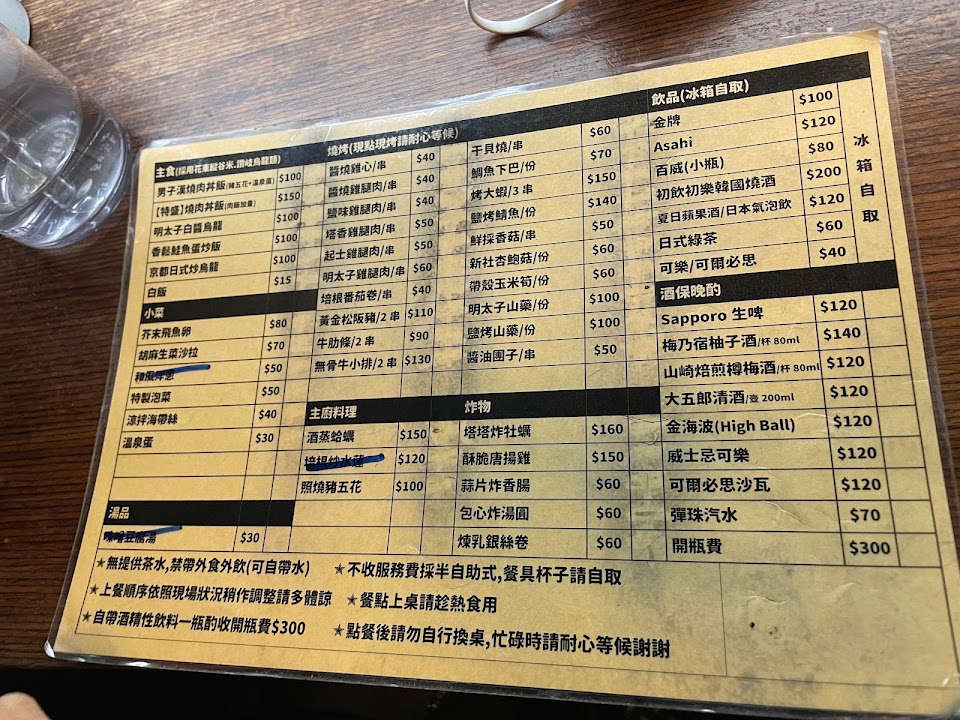 主食(採用花東縱谷米.讚岐烏龍麵)
男子漢燒肉丼飯(豬五花+溫泉蛋) $100
【特盛】燒肉丼飯(肉飯加量) $150
明太子白醬烏龍 $100
香鬆鮭魚蛋炒飯 $100
京都日式炒烏龍 $100
白飯 $15
小菜
芥末飛魚卵 $80
胡麻生菜沙拉 $70
和風洋蔥 $50
特製泡菜 $50
涼拌海帶絲 $40
溫泉蛋 $30
湯品
味噌豆腐湯 $30
燒烤(現點現烤請耐心等候)
醬燒雞心/串 $40
醬燒雞腿肉/串 $40
鹽味雞腿肉/串 $40
塔香雞腿肉/串 $50
起士雞腿肉/串 $50
明太子雞腿肉/串 $60
培根番茄卷/串 $40
黃金松阪豬/2 串 $110
牛肋條/2 串 $90
無骨牛小排/2 串 $130
干貝燒/串 $60
鯛魚下巴/份 $70
烤大蝦/3 串 $150
鹽烤鯖魚/份 $140
鮮採香菇/串 $50
新社杏鮑菇/份 $60
帶殼玉米筍/份 $60
明太子山藥/份 $100
鹽烤山藥/份 $100
醬油團子/串 $50
主廚料理
酒蒸蛤蠣 $150
培根炒水蓮 $120
照燒豬五花 $100
炸物
塔塔炸牡蠣 $160
酥脆唐揚雞 $150
蒜片炸香腸 $60
包心炸湯圓 $60
煉乳銀絲卷 $60
飲品(冰箱自取)
金牌 $100
Asahi $120
百威(小瓶) $80
初飲初樂韓國燒酒 $200
夏日蘋果酒/日本氣泡飲 $120
日式綠茶 $60
可樂/可爾必思 $40
冰箱自取
酒保晚酌
Sapporo 生啤 $120
梅乃宿柚子酒/杯 80ml $140
山崎焙煎樽梅酒/杯 80ml $120
大五郎清酒/壺 200ml $120
金海波(High Ball) $120
威士忌可樂 $120
可爾必思沙瓦 $120
彈珠汽水 $70
開瓶費 $300
★無提供茶水,禁帶外食外飲(可自帶水)
★上餐順序依照現場狀況稍作調整請多體諒
★自帶酒精性飲料一瓶酌收開瓶費$300
★不收服務費採半自助式,餐具杯子請自取
★餐點上桌請趁熱食用
★點餐後請勿自行換桌,忙碌時請耐心等候謝謝